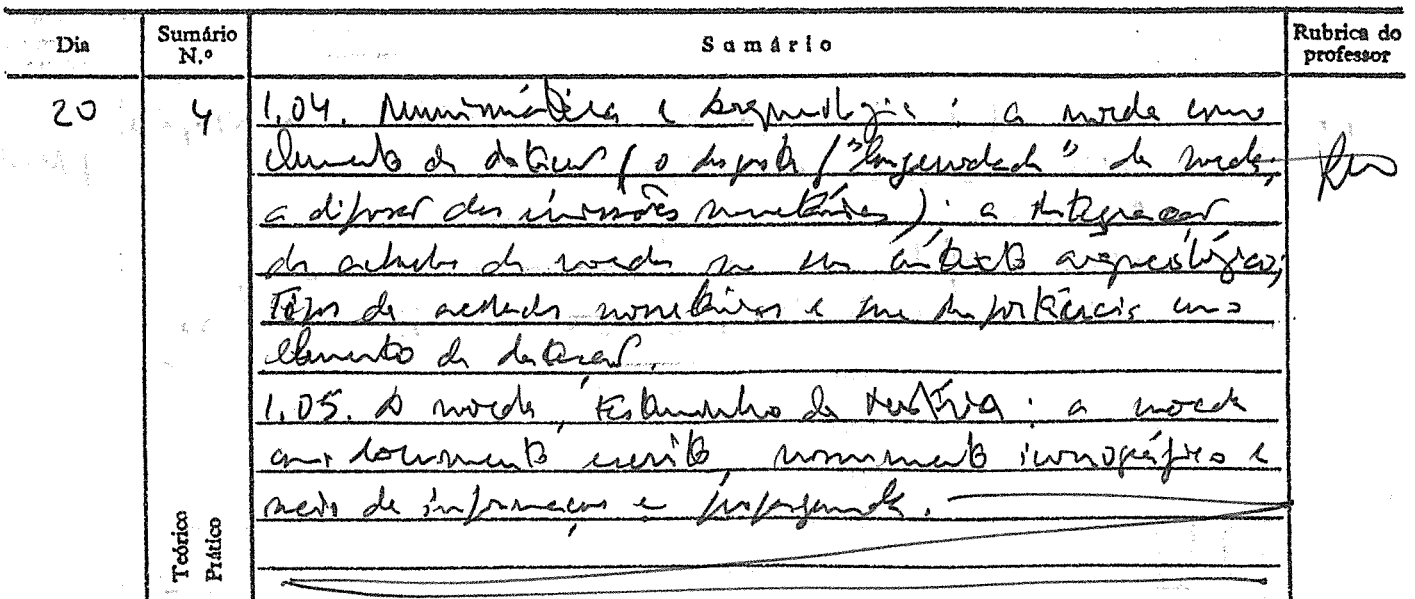 Dia Sumário N.º Sumário Rubrica do professor
20 4 1.04. Numismática e Arqueologia: a moeda como
elemento de datação (o desgaste / "longevidade" da moeda;
a difusão das emissões monetárias); a integração
de achados de moedas no seu contexto arqueológico;
Tipos de achados monetários e sua importância como
elemento de datação.
1.05. A moeda, testemunho da história: a moeda
como documento escrito, monumento iconográfico e
meio de informação e propaganda.
Teórico
Prático